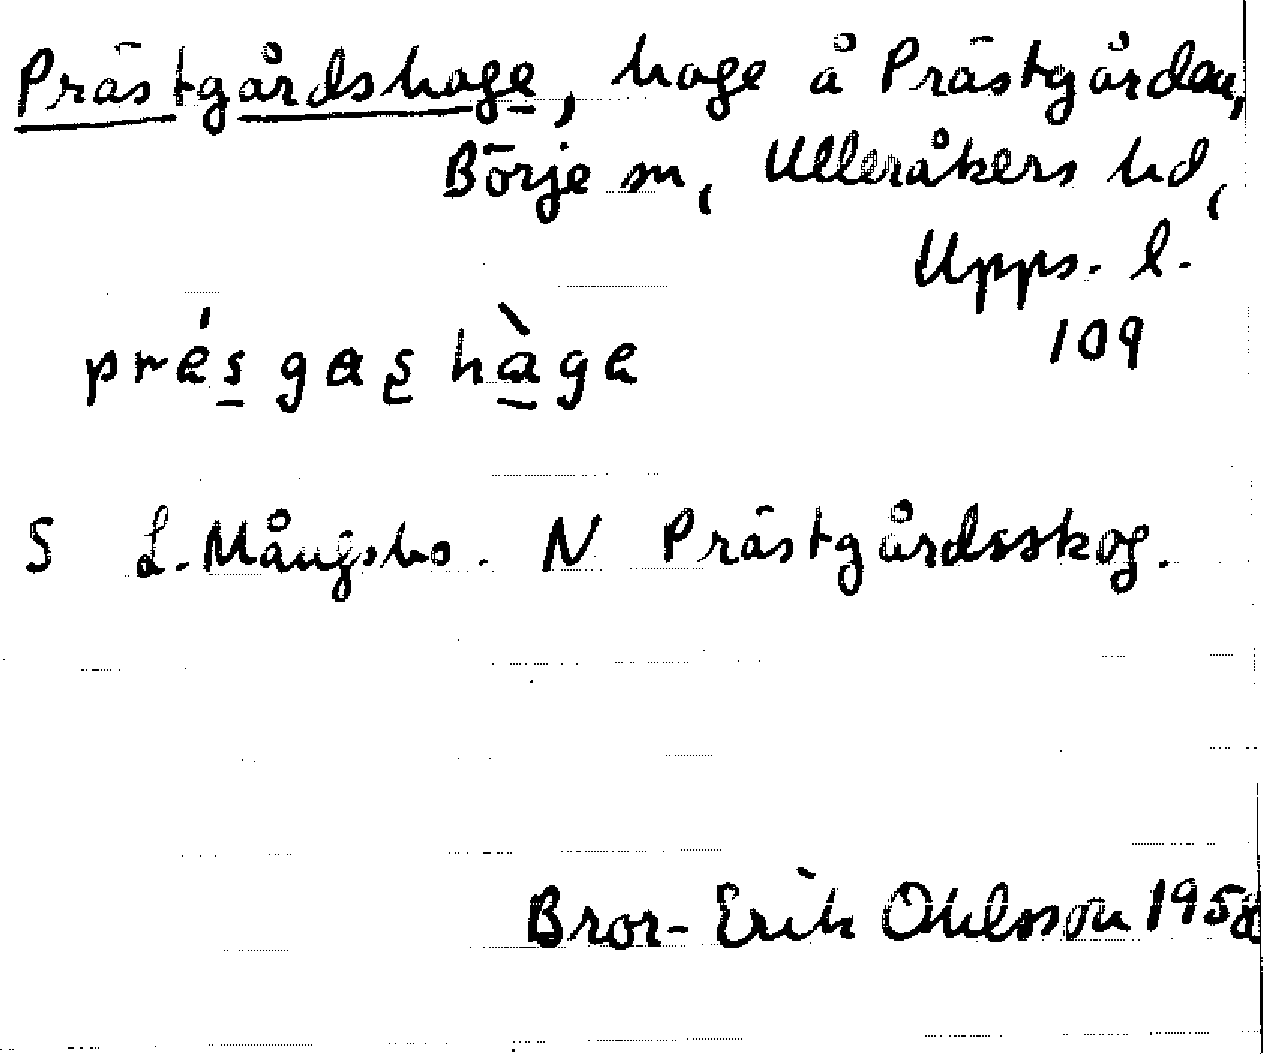 Prästgårdshage, hage å Prästgården,
Börje sn, Ulleråkers hd,
Upps. l.
109
présgashàge
S L. Mångsbo. N Prästgårdsskog.
Bror-Erik Ohlsson 1958